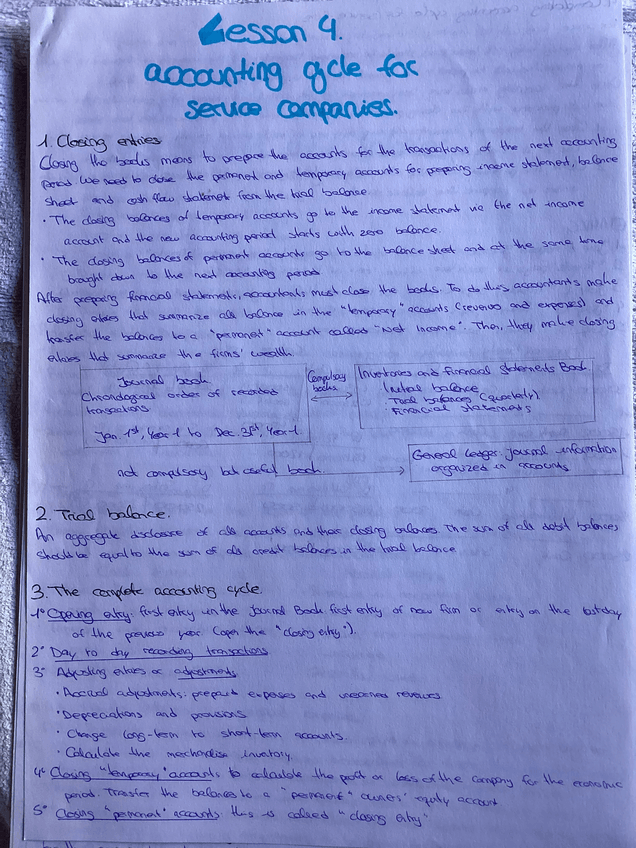 Lesson 4.
accounting cycle for
service companies.
1. Closing entries
Closing the books means to prepare the accounts for the transactions of the next accounting
period. We need to close the permanent and temporary accounts for preparing income statement, balance
sheet and cash flow statement from the trial balance.
• The closing balances of temporary accounts go to the income statement via the net income
account and the new accounting period starts with zero balance.
• The closing balances of permanent accounts go to the balance sheet and at the same time
brought down to the next accounting period
After preparing financial statements, accountants must close the books. To do this accountants make
closing entries that summarize all balance in the "temporary" accounts (revenues and expenses) and
transfer the balances to a "permanent" account called "Net Income". Then, they make closing
entries that summarize the firms' wealth.
Journal book
Chronological order of recorded
transactions
Jan. 1st, Year 1 to Dec. 31st, Year 1.
Compulsory
books
Inventories and Financial Statements Book
Initial balance
Trial balances (quarterly)
• Financial statements
not compulsory but useful book
General Ledger: Journal information
organized in accounts
2. Trial balance.
An aggregate disclosure of all accounts and their closing balances. The sum of all debit balances
should be equal to the sum of all credit balances in the trial balance
3. The complete accounting cycle.
1º Opening entry: first entry in the Journal Book first entry of new firm or entry on the last day
of the previous year (open the "closing entry").
2º Day to day recording transactions
3º Adjusting entries or adjustments
• Accrual adjustments: prepaid expenses and unearned revenues
• Depreciations and provisions
• Change long-term to short-term accounts.
• Calculate the merchandise inventory
4º Closing "temporary" accounts to calculate the profit or loss of the company for the economic
period. Transfer the balances to a "permanent" owners' equity account
5º Closing "permanent" accounts: this is called "closing entry"